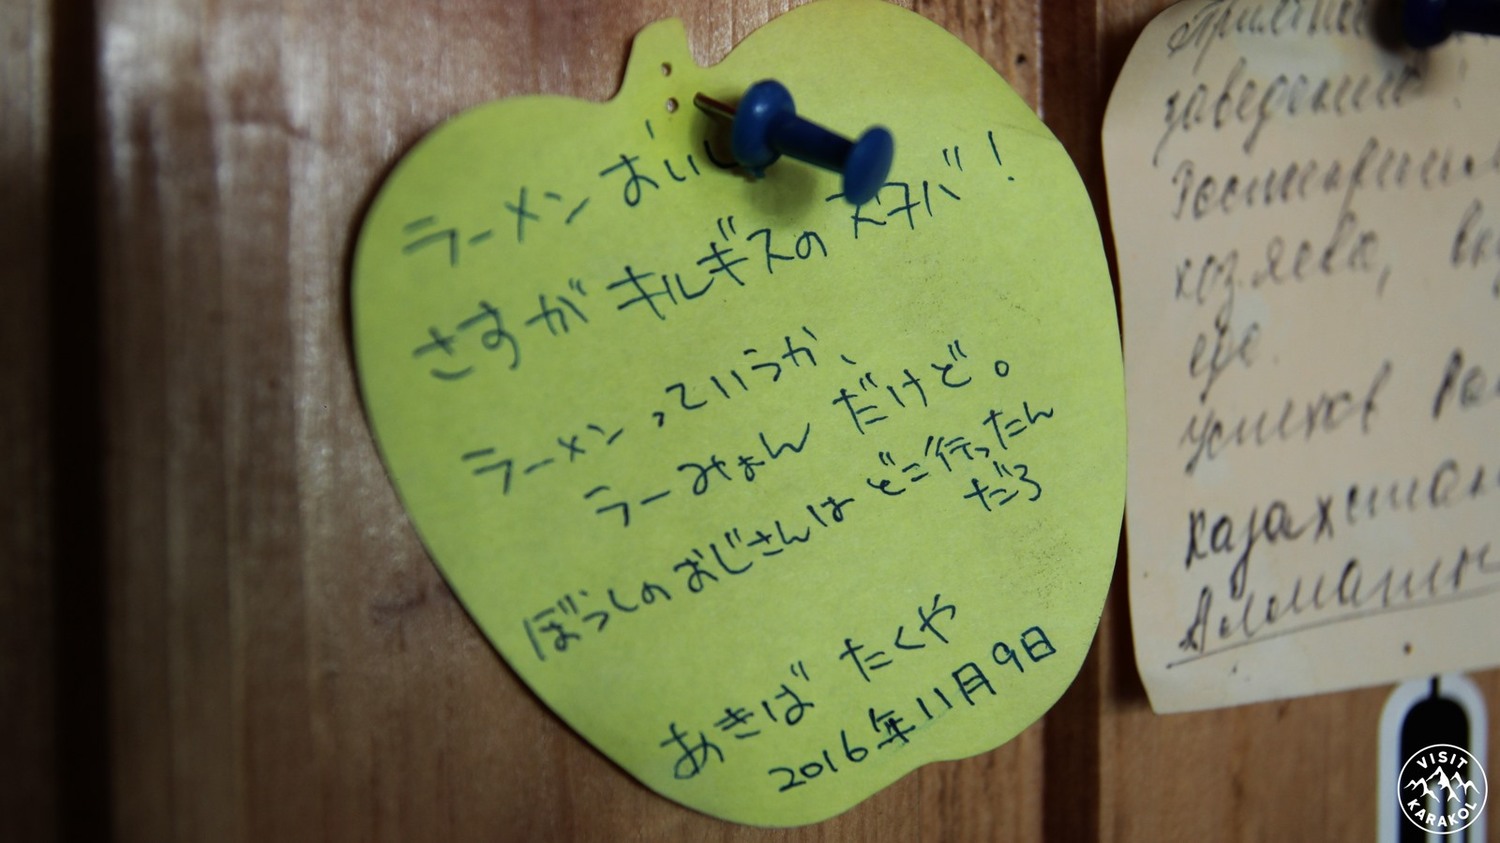 ラーメン おいし
さすが キルギスの スタバ!
ラーメン っていうか、
ラーみょん だけど。
ぼうしの おじさんは どこ行ったん
だろ
あきば たくや
2016年11月9日
заведение!
хозяева,
еде.
успехов
Казахстан
Алматы
VISIT
KARAKOL